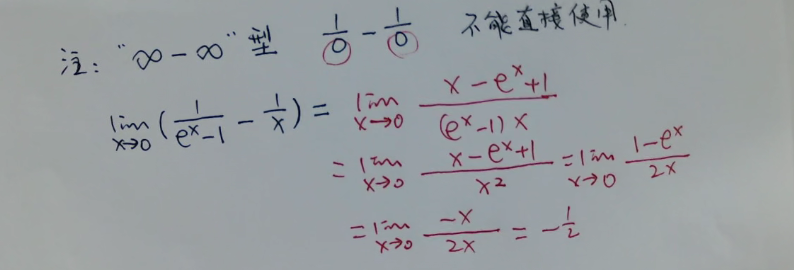 注：“∞－∞”型 1/0 － 1/0 不能直接使用
lim x→0 (1/(eˣ－1) － 1/x) = lim x→0 (x－eˣ+1)/((eˣ－1)x)
= lim x→0 (x－eˣ+1)/x² = lim x→0 (1－eˣ)/2x
= lim x→0 －x/2x = －1/2